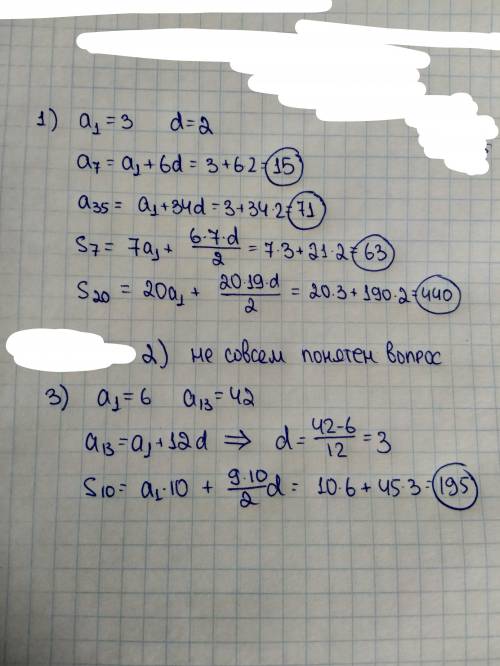 1) a₁ = 3 d = 2
a₇ = a₁ + 6d = 3 + 6·2 = 15
a₃₅ = a₁ + 34d = 3 + 34·2 = 71
S₇ = 7a₁ + 6·7·d/2 = 7·3 + 21·2 = 63
S₂₀ = 20a₁ + 20·19·d/2 = 20·3 + 190·2 = 440
2) не совсем понятен вопрос
3) a₁ = 6 a₁₃ = 42
a₁₃ = a₁ + 12d ⇒ d = 42-6/12 = 3
S₁₀ = a₁·10 + 9·10/2 d = 10·6 + 45·3 = 195